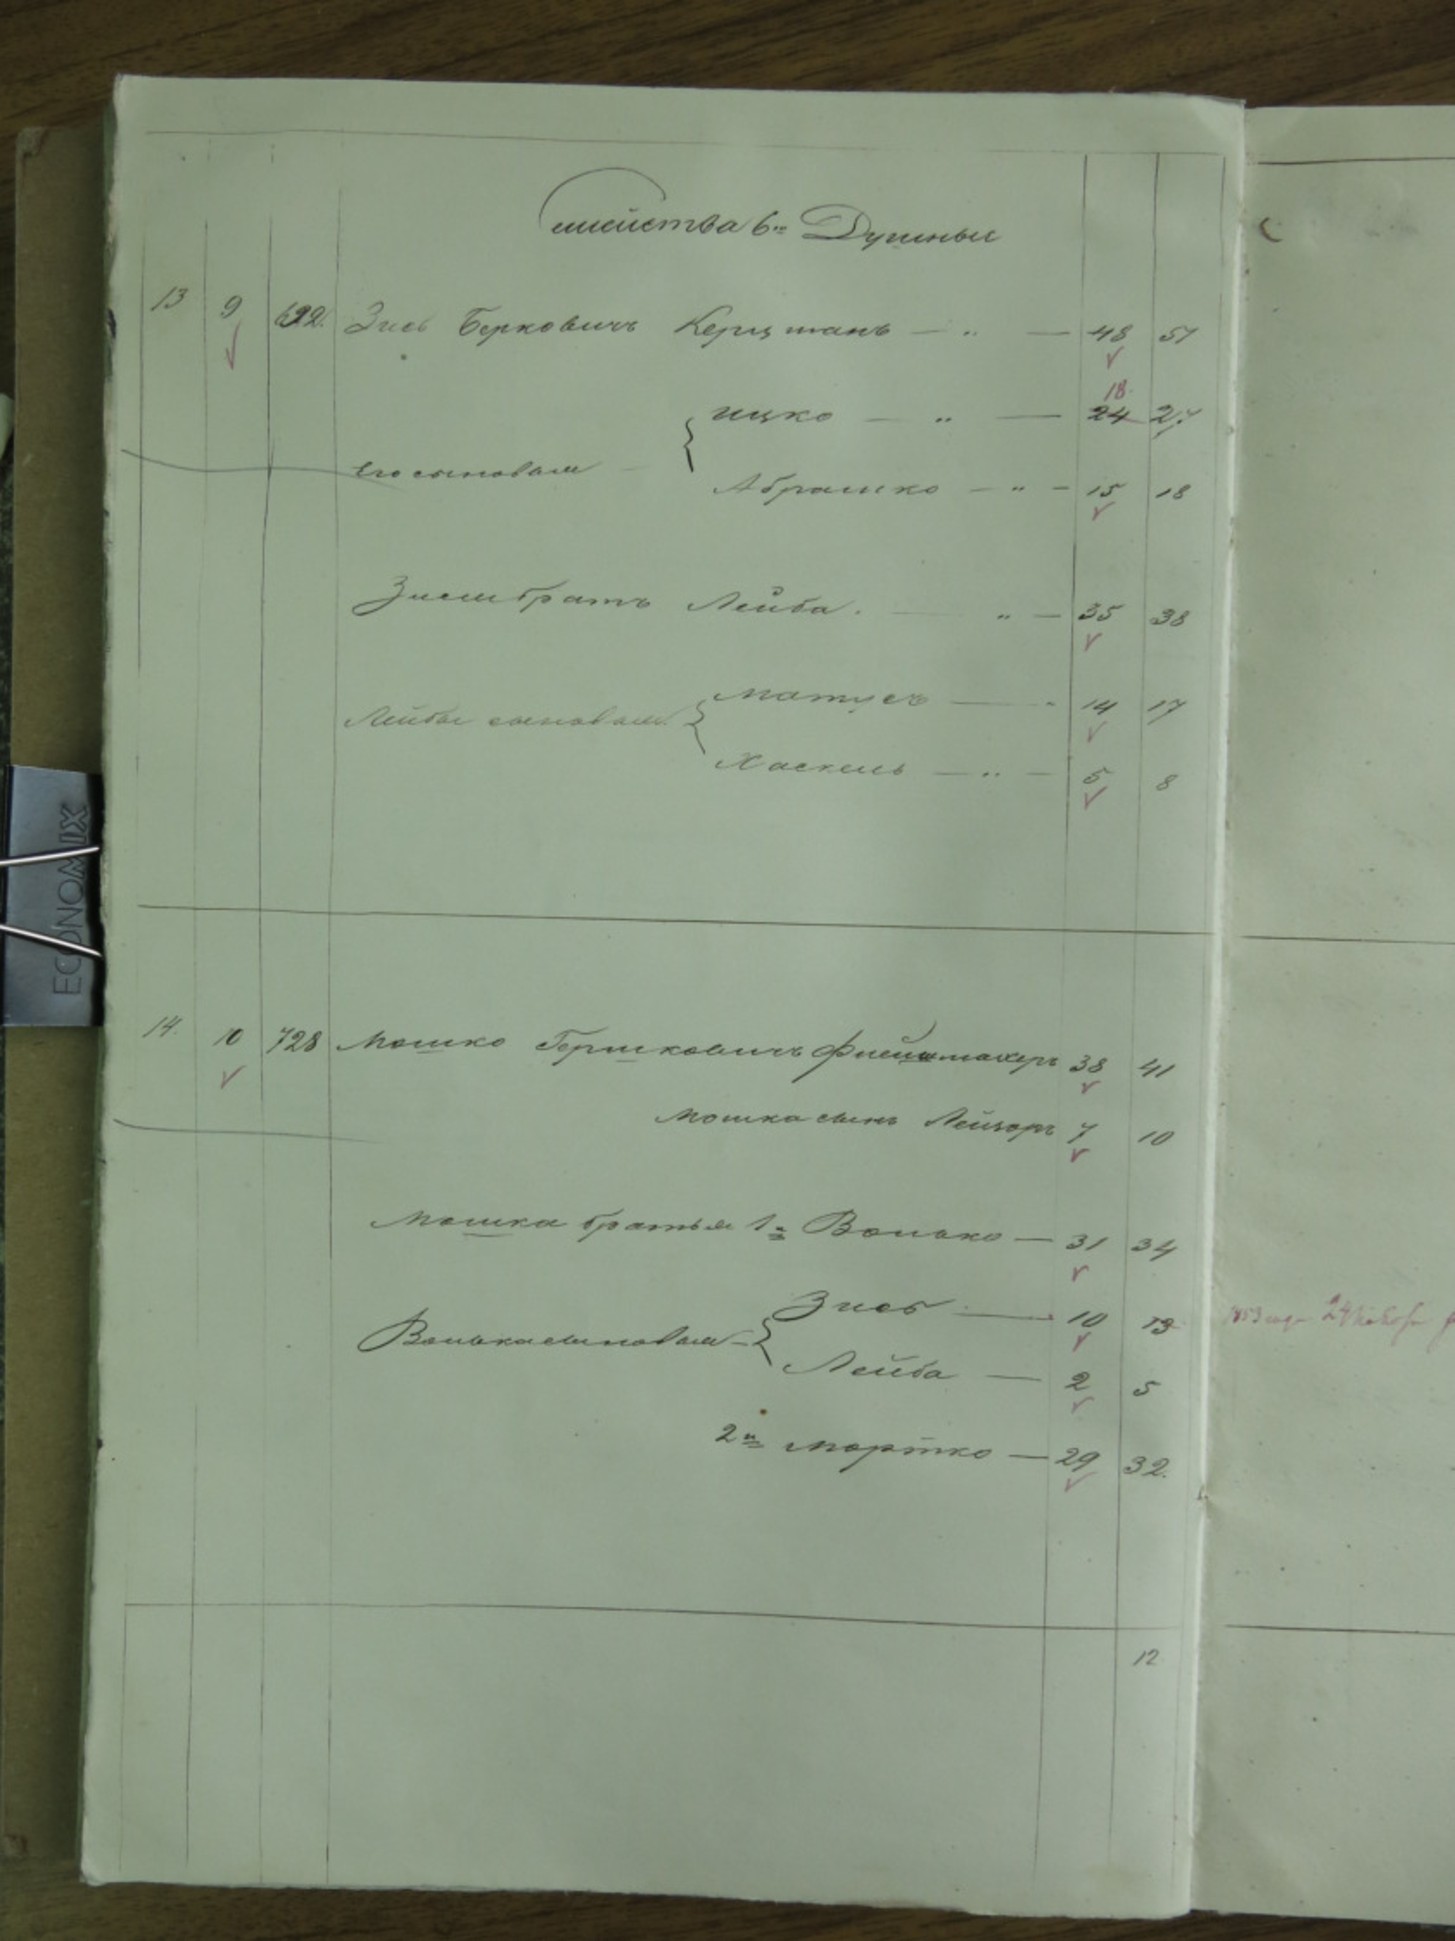 Семейства 6ти Душныя
13 9 692. Зись Берковичъ Керцманъ — „ — 48 51
18
Ицко — „ — 24 27
Его сыновья
Абрашко — „ — 15 18
Зисы братъ Лейба. — „ — 35 38
Матусъ — „ 14 17
Лейбы сыновья
Хаскель — „ — 5 8
14. 10 728 Мошко Гершковичъ 38 41
Мошка сынъ Лейзоръ 7 10
Мошка братья 1й Волько — 31 34
Зись — 10 13
Волька сыновья
Лейба — 2 5
2й Мортко — 29 32.
12
ECONOMIX